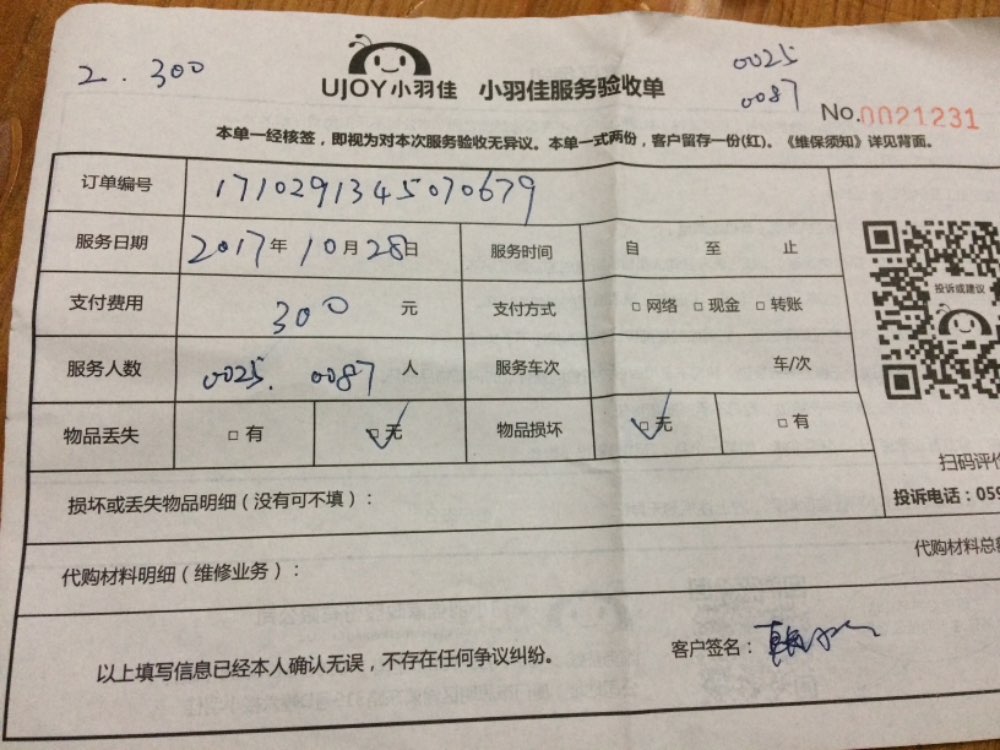 2. 300
0025
0087
UJOY小羽佳 小羽佳服务验收单
No.0021231
本单一经核签，即视为对本次服务验收无异议。本单一式两份，客户留存一份(红)。《维保须知》详见背面。
订单编号 1710291345070679
服务日期 2017年10月28日 服务时间 自 至 止
投诉或建议
支付费用 300 元 支付方式 □网络 □现金 □转账
服务人数 0025. 0087 人 服务车次 车/次
物品丢失 □有 □无 物品损坏 □无 □有
扫码评价
投诉电话：059
损坏或丢失物品明细（没有可不填）：
代购材料总额
代购材料明细（维修业务）：
以上填写信息已经本人确认无误，不存在任何争议纠纷。 客户签名：